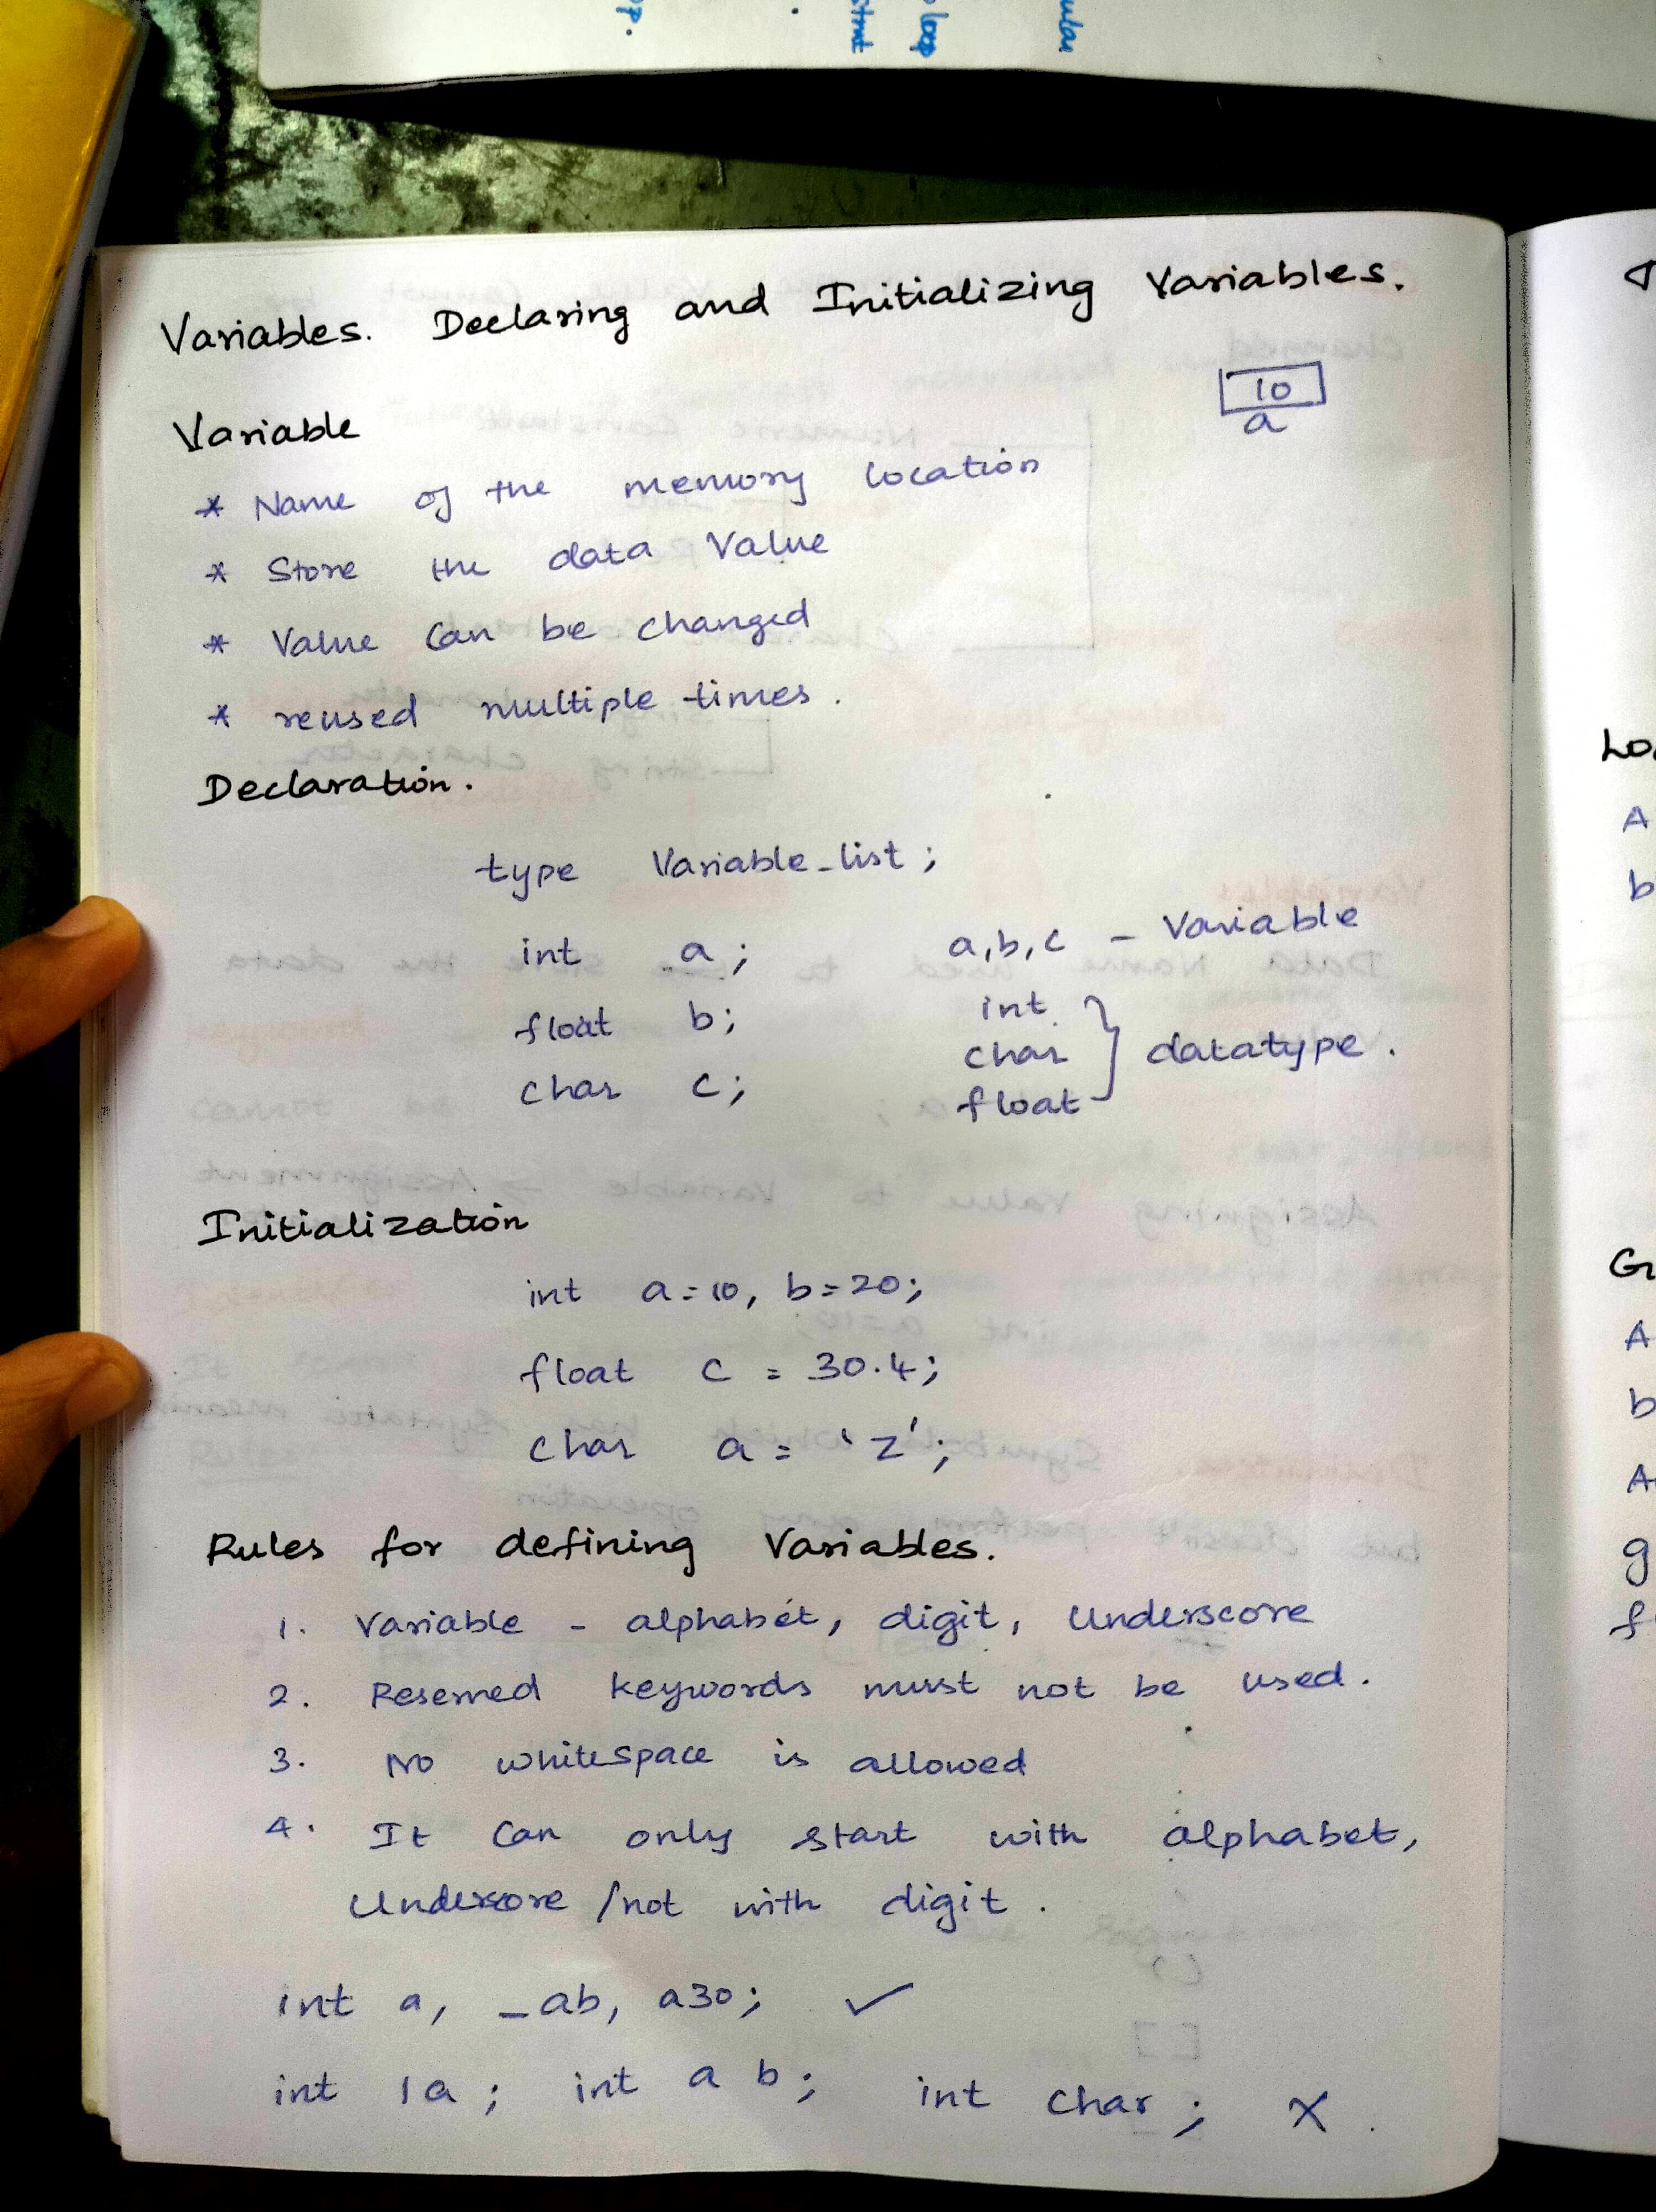 ular
loop
Variables. Declaring and Initializing Variables.
10
a
Variable
* Name of the memory location
* Store the data Value
* Value Can be changed
* reused multiple times.
Declaration.
type Variable_list;
int a; a,b,c - Variable
float b; int
char } datatype.
char c; float
Initialization
int a=10, b=20;
float c = 30.4;
char a = 'z';
Rules for defining Variables.
1. Variable - alphabet, digit, Underscore
2. Reserved keywords must not be used.
3. No whitespace is allowed
4. It Can only start with alphabet,
Underscore /not with digit.
int a, _ab, a30; ✓
int 1a; int a b; int char; X.
A
b
G
A
b
A
g
f